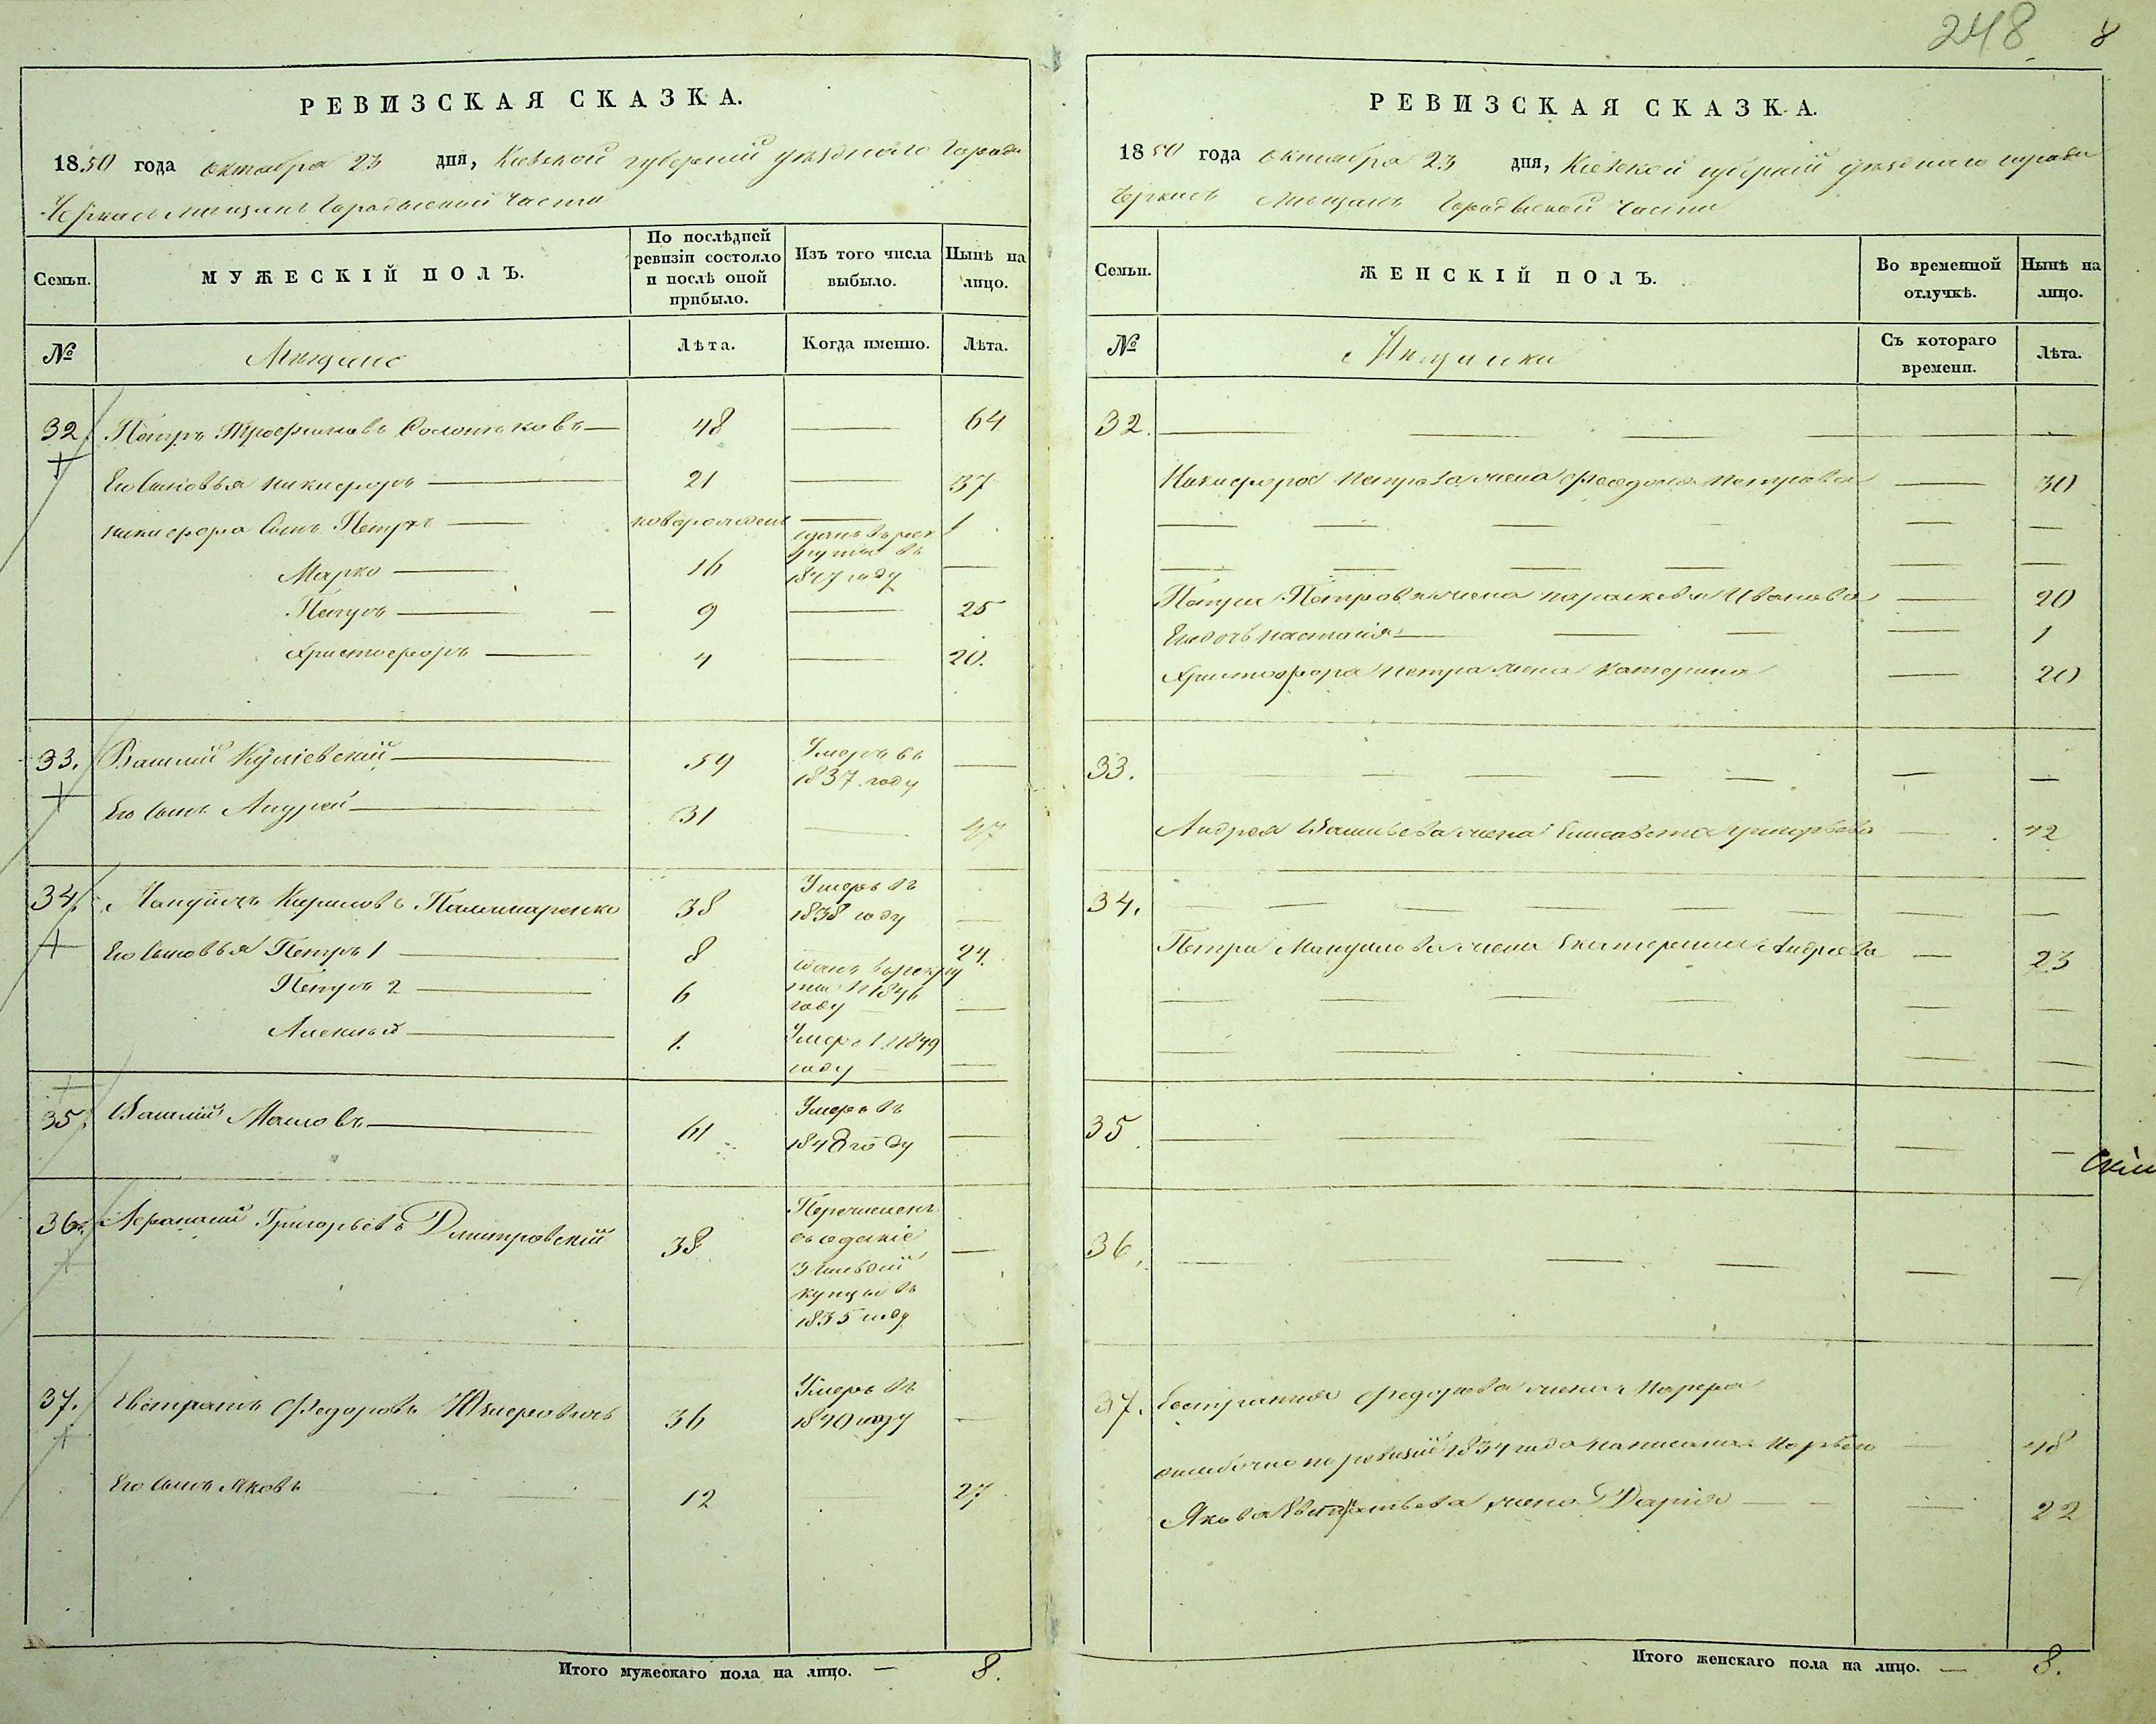 248 8
РЕВИЗСКАЯ СКАЗКА.
1850 года октября 23 дня, Киевской губернии уѣзднаго города
Черкасъ мещанъ Городской части
Семьи.
МУЖЕСКІЙ ПОЛЪ.
По послѣдней ревизіи состояло и послѣ оной прибыло.
Изъ того числа выбыло.
Нынѣ на лицо.
№
Мещане
Лѣта.
Когда именно.
Лѣта.
32. Петръ 48 — 64
Его сыновья Никифоръ — 21 — 37
Никифора сынъ Петръ — новорожден — 1
Марко — 16 сданъ въ рекруты въ 1847 году —
Петръ — 9 — 25
Христофоръ — 4 — 20.
33. Василий — 59 Умеръ въ 1837 году —
Его сынъ Андрей — 31 — 47
34. Кириловъ Паламаренко 38 Умеръ въ 1838 году —
Его сыновья Петръ 1 — 8 24.
Петръ 2 — 6 сданъ въ рекруты въ 1846 году —
Алексей — 1. Умеръ въ 1849 году —
35. Василий — 61 Умеръ въ 1848 году —
36. Афанасий Григорьевъ Дмитровский 38 Перечисленъ купцы въ 1835 году —
37. Евстратъ Федоровъ 36 Умеръ въ 1840 году —
Его сынъ Яковъ 12 — 27
Итого мужескаго пола на лицо. — 8.
РЕВИЗСКАЯ СКАЗКА.
1850 года октября 23 дня, Киевской губернии уѣзднаго города
Черкасъ Мещанъ Городской части
Семьи.
ЖЕНСКІЙ ПОЛЪ.
Во временной отлучкѣ.
Нынѣ на лицо.
№
Мещанки
Съ котораго времени.
Лѣта.
32. — — — —
Никифора Петрова жена Феодосия Петрова — 30
— — — —
— — — —
Петра Петрова жена Параскевия Иванова — 20
Ихъ дочь Настасия — 1
Христофора Петра жена Катерина — 20
33. — — — —
Андрея Васильева жена Елисавета Григорьева — 42
34. — — — —
Петра Мануилова жена Екатерина Андреева — 23
— — — —
— — — —
35 — — — —
36. — — — —
37. Евстратия Федорова жена Марфа
ошибочно по ревизии 1834 года написана 48
Якова жена Дария — 22
Итого женскаго пола на лицо. — 8.